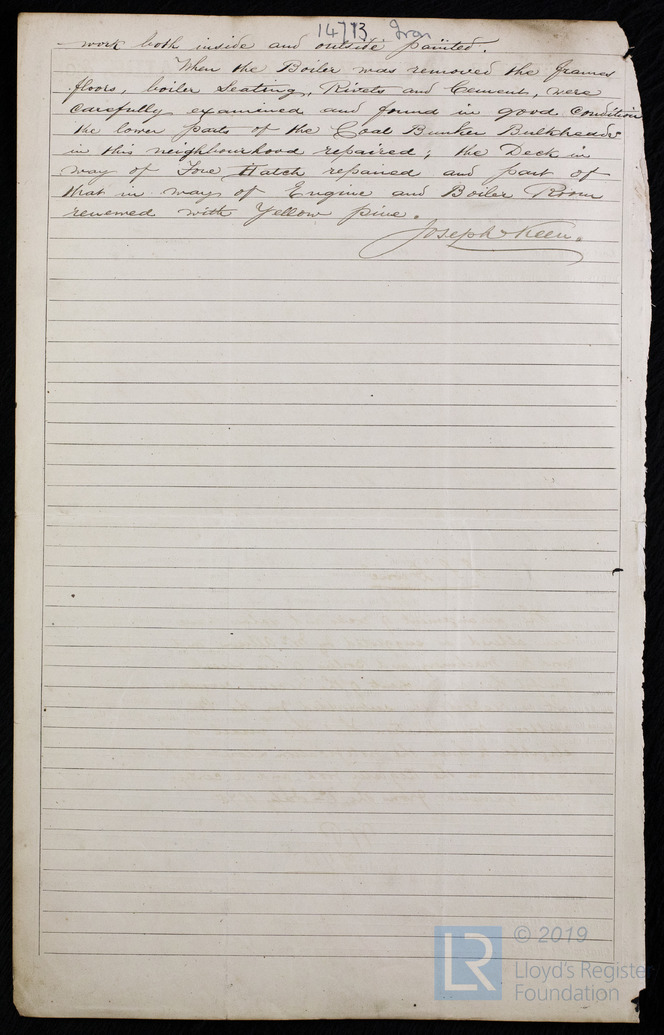 14773 Iron
work both inside and outside painted.
When the Boiler was removed the frames
floors, boiler Seating, Rivets and Cement, were
carefully examined and found in good condition
the lower parts of the Coal Bunker Bulkheads
in this neighbourhood repaired; the Deck in
way of Fore Hatch repaired and part of
that in way of Engine and Boiler Room
renewed with Yellow pine.
Joseph Keen.
LR
© 2019
Lloyd's Register
Foundation